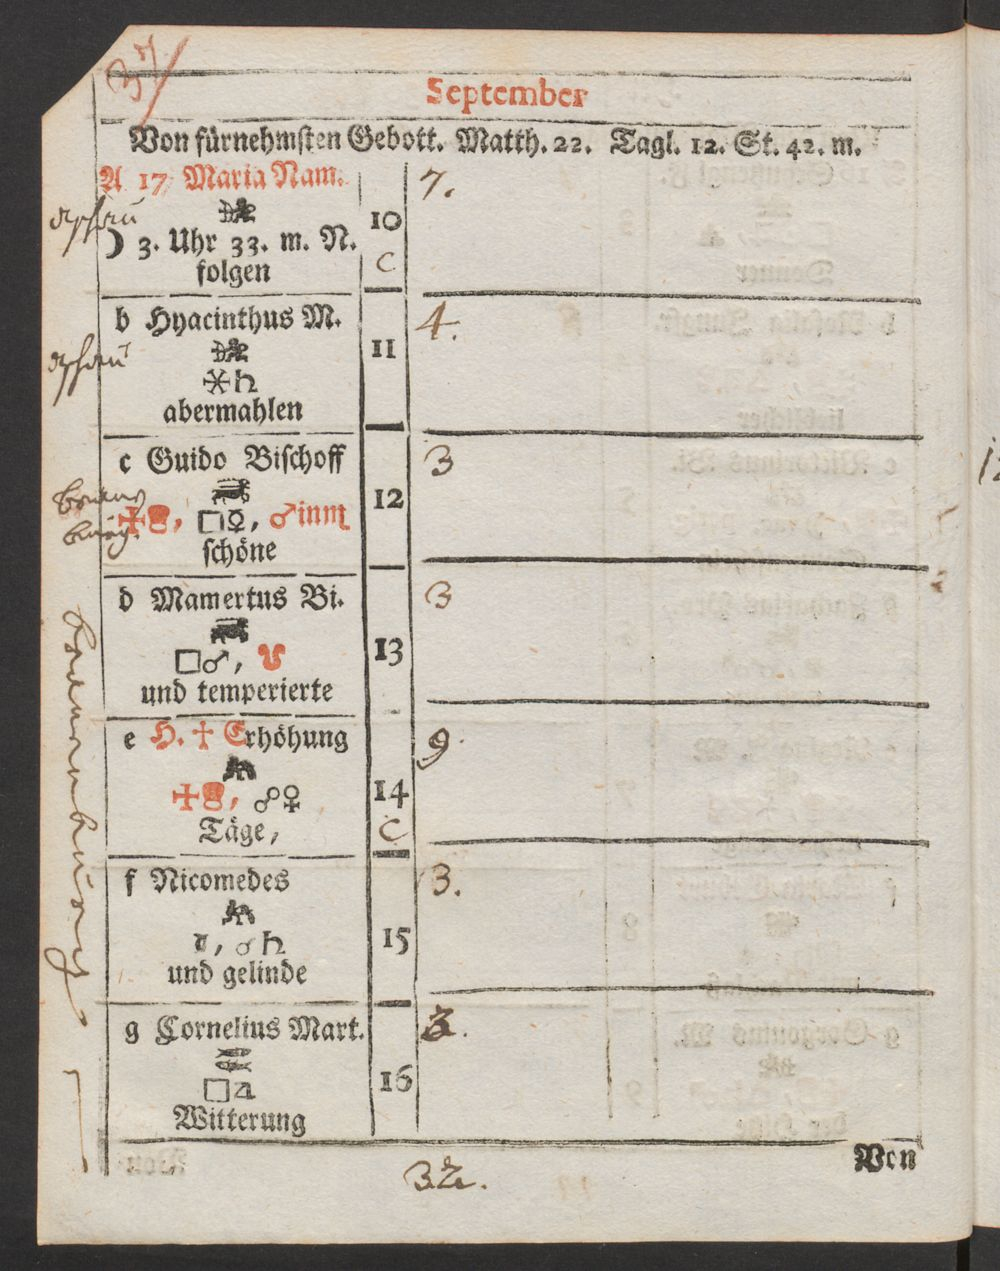 37
September
Von fürnehmsten Gebott. Matth. 22. Tagl. 12. St. 42. m.
A 17 Maria Nam.
☽ 3. Uhr 33. m. N.
folgen
10
C
7.
b Hyacinthus M.
⚹♄
abermahlen
11
4.
c Guido Bischoff
□♀, ♂in♏
schöne
12
3
d Mamertus Bi.
□♂,
und temperierte
13
3
e H. ☩ Erhöhung
☍♀
Täge,
14
C
9.
f Nicomedes
☌♄
und gelinde
15
3.
g Cornelius Mart.
□♃
Witterung
16
3.
32.
Von